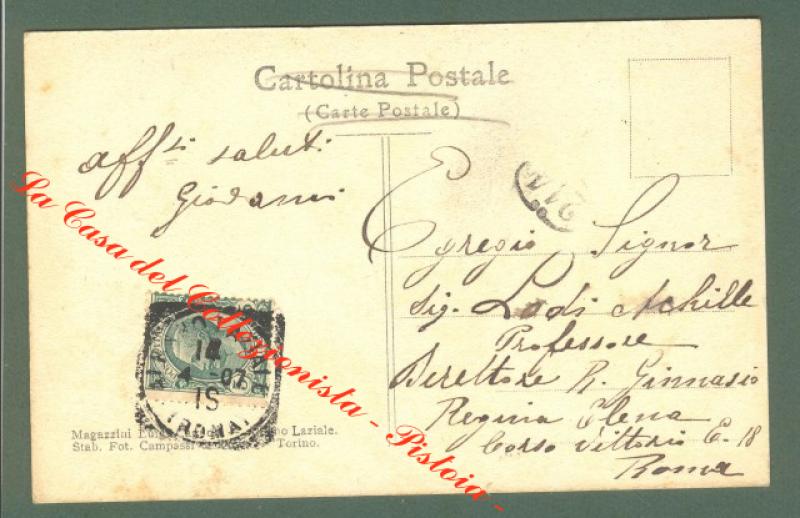 Cartolina Postale
(Carte Postale)
aff.si saluti
Giovanni
214
Egregio Signor
Sig. Lodi Achille
Professore
Direttore R. Ginnasio
Regina Elena
Corso Vittorio E. 18
Roma
14
4-07
1S
(ROMA)
Magazzini Laziale.
Stab. Fot. Campassi Torino.
La Casa del Collezionista - Pistoia -